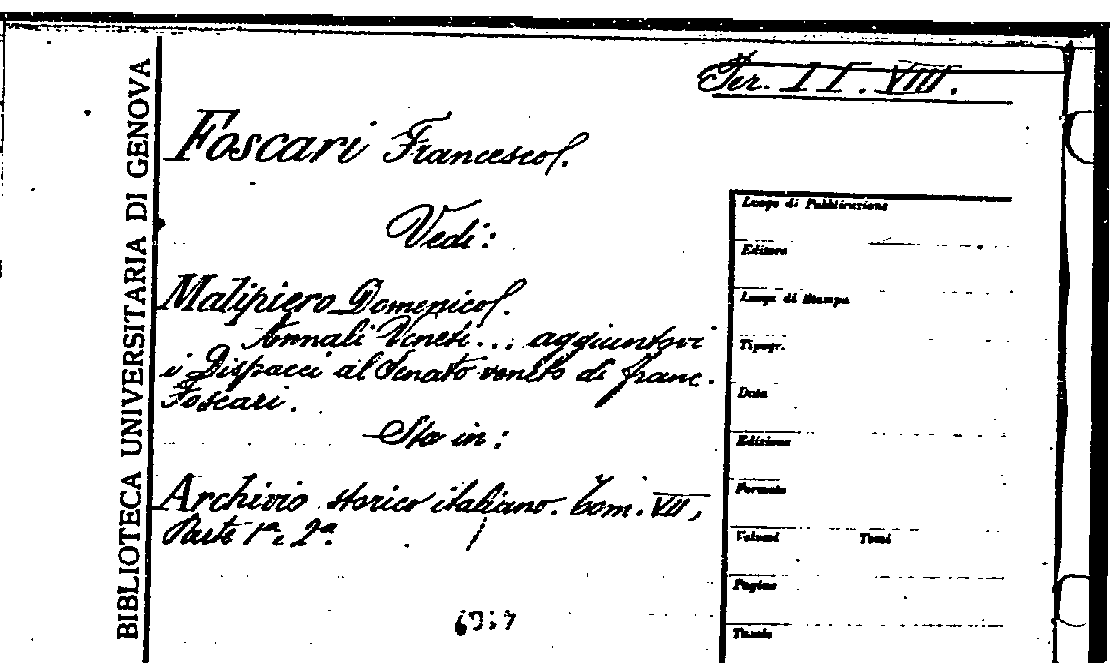 BIBLIOTECA UNIVERSITARIA DI GENOVA
Per. II. VIII.
Foscari Francesco.
Vedi:
Malipiero Domenico.
Annali Veneti... aggiuntovi
i Dispacci al Senato veneto di Franc.
Foscari.
Sta in:
Archivio storico italiano. Tom. VII,
Parte 1ª e 2ª.
Luogo di Pubblicazione
Editore
Luogo di Stampa
Tipogr.
Data
Edizione
Formato
Volumi Tomi
Pagine
Tavole